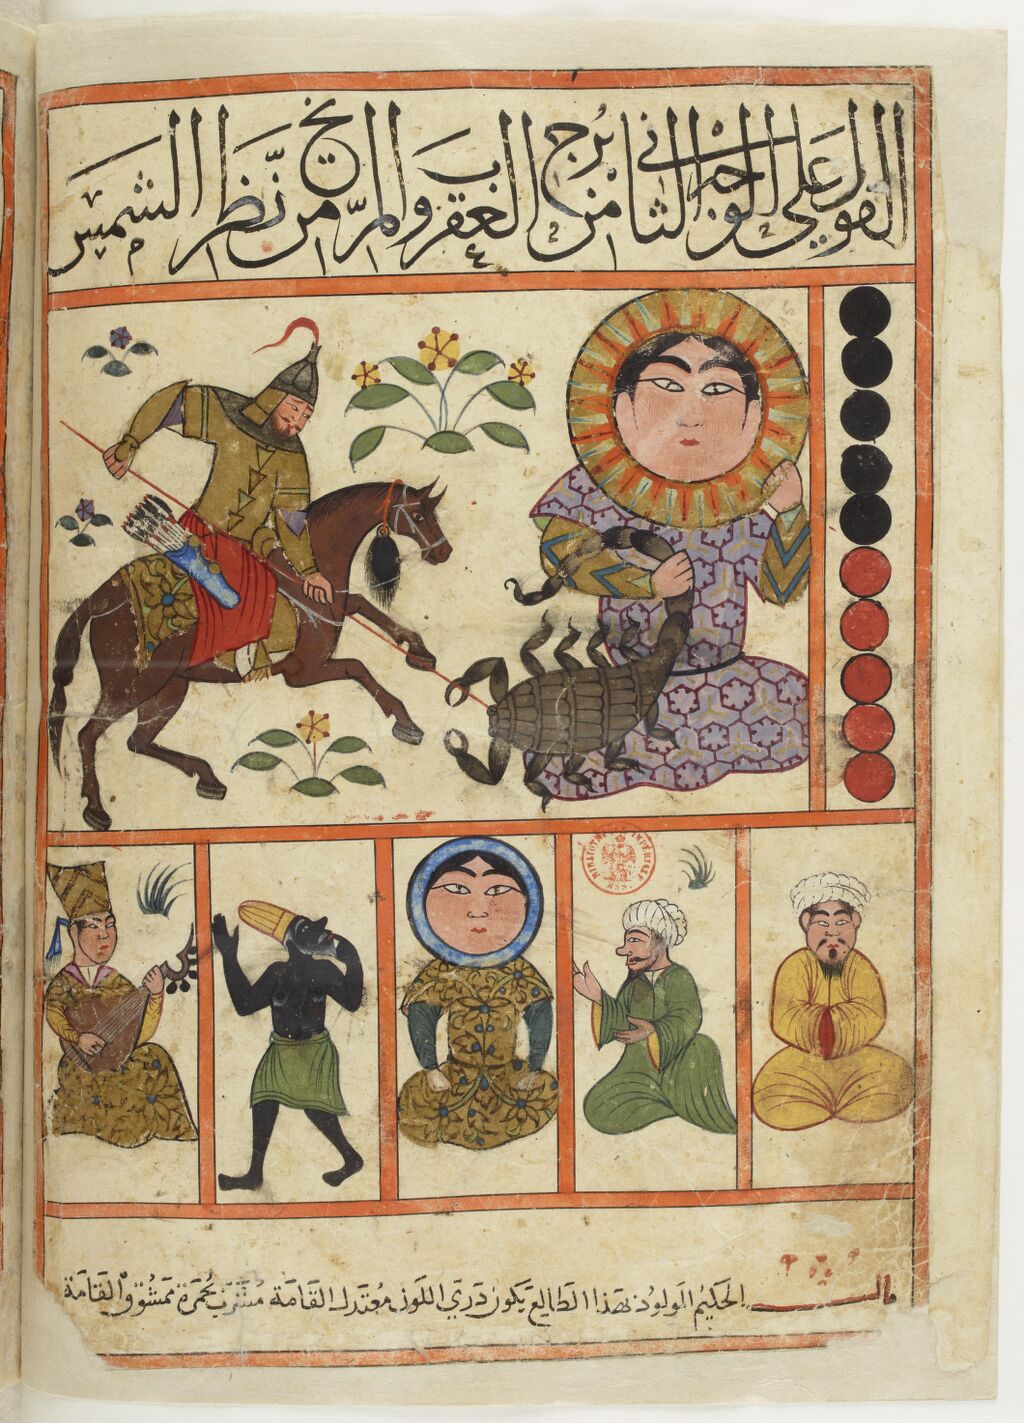 القول على الوجه الثاني من برج العقرب والمريخ من نظر الشمس
BIBLIOTHÈQUE IMPÉRIALE MSS.
قال الحكيم المولود بهذا الطالع يكون دري اللون معتدل القامة مشرب بحمرة ممشوق القامة